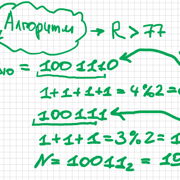 Алгоритм → R > 77
= 1001110
1+1+1+1 = 4%2 =
100111
1+1+1 = 3%2 = 1
N = 10011₂ = 19